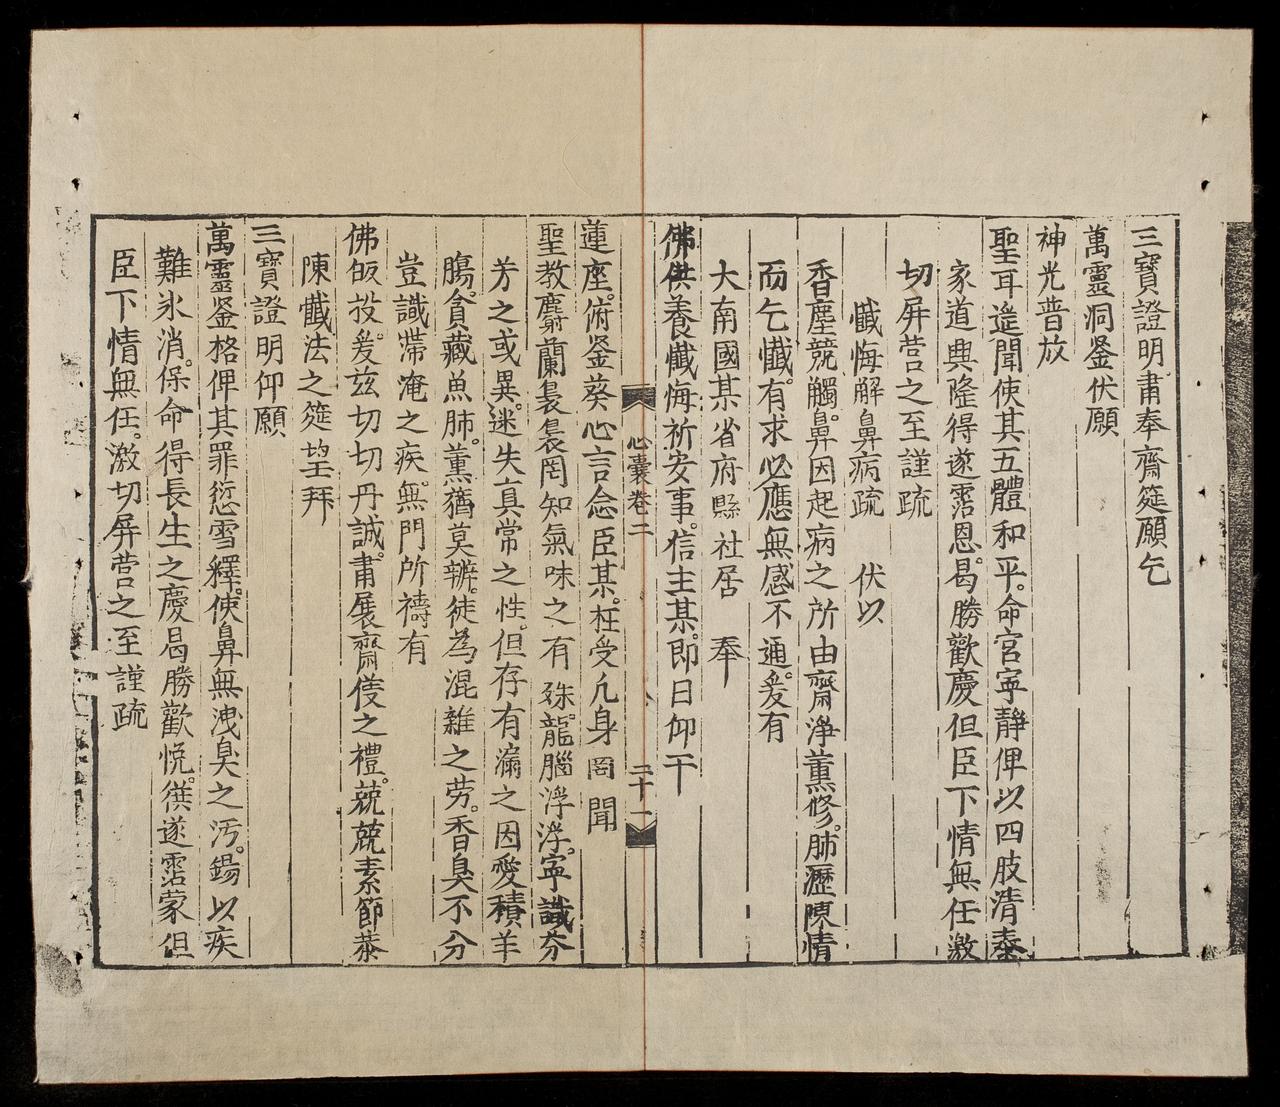 三寶證明肅奉齋筵願乞
萬靈洞鉴伏願
神光普放
聖耳遥聞使其五體和平。命宮寜靜俾以四肢清泰
家道興隆得遂霑恩。曷勝歡慶但臣下情無任激
切屏营之至謹疏
懺悔解鼻病疏　伏以
香塵競觸。鼻因起病之所由齋淨薰修。肺瀝陳情
而乞懺。有求必應無感不通。爰有
大南國某省府縣社居　奉
佛供養懺悔祈安事。信主某。即日仰干
心囊卷二　二十一
蓮座。俯鉴葵心言念臣某。枉受凢身罔聞
聖教麝蘭裊裊罔知氣味之有殊。龍腦浮浮。寜識芬
芳之或異。迷失真常之性。但存有漏之因愛積羊
膓。貪藏魚肺。薰蕕莫辨。徒為混雜之劳。香臭不分
豈識滯淹之疾。無門所禱有
佛皈投。爰茲切切丹誠。肅展齋筵之禮。兢兢素節恭
陳懺法之筵望拜
三寶證明仰願
萬靈鉴格俾其罪愆雪釋。使鼻無洩臭之污。錫以疾
難氷消。保命得長生之慶曷勝歡悦。獲遂霑蒙但
臣下情無任。激切屏营之至謹疏